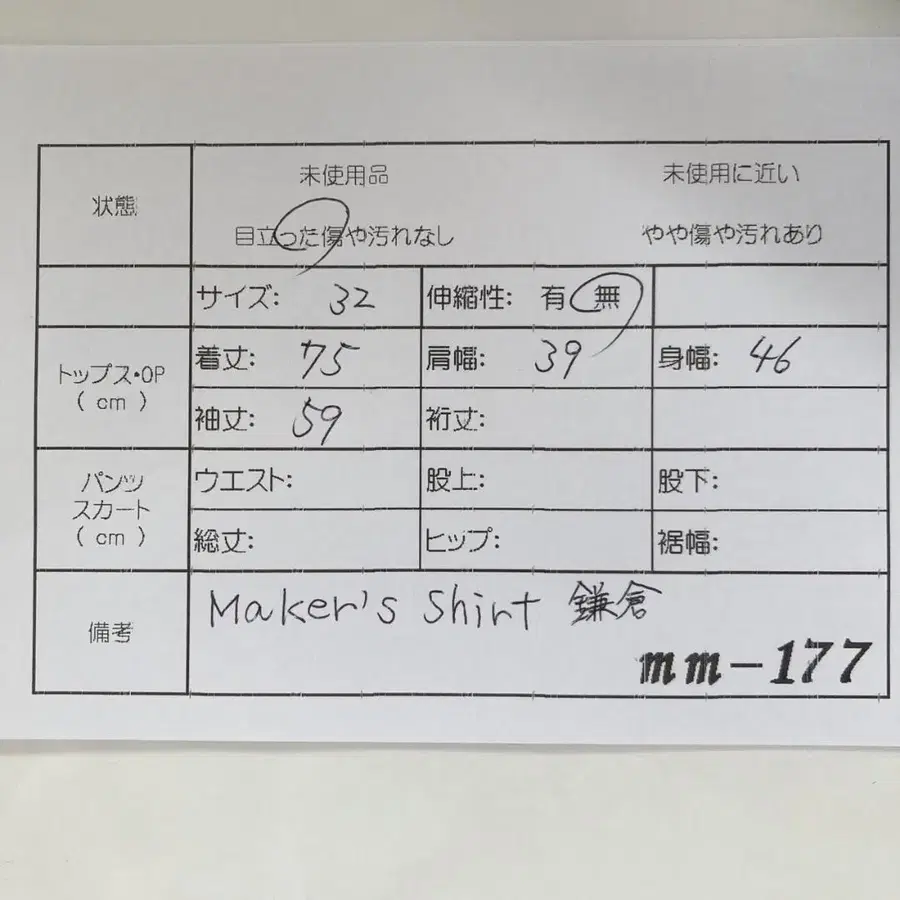 状態
未使用品 未使用に近い
目立った傷や汚れなし やや傷や汚れあり
サイズ: 32 伸縮性: 有 無
トップス・OP
( cm )
着丈: 75 肩幅: 39 身幅: 46
袖丈: 59 裄丈:
パンツ
スカート
( cm )
ウエスト: 股上: 股下:
総丈: ヒップ: 裾幅:
備考
Maker's Shirt 鎌倉
mm-177